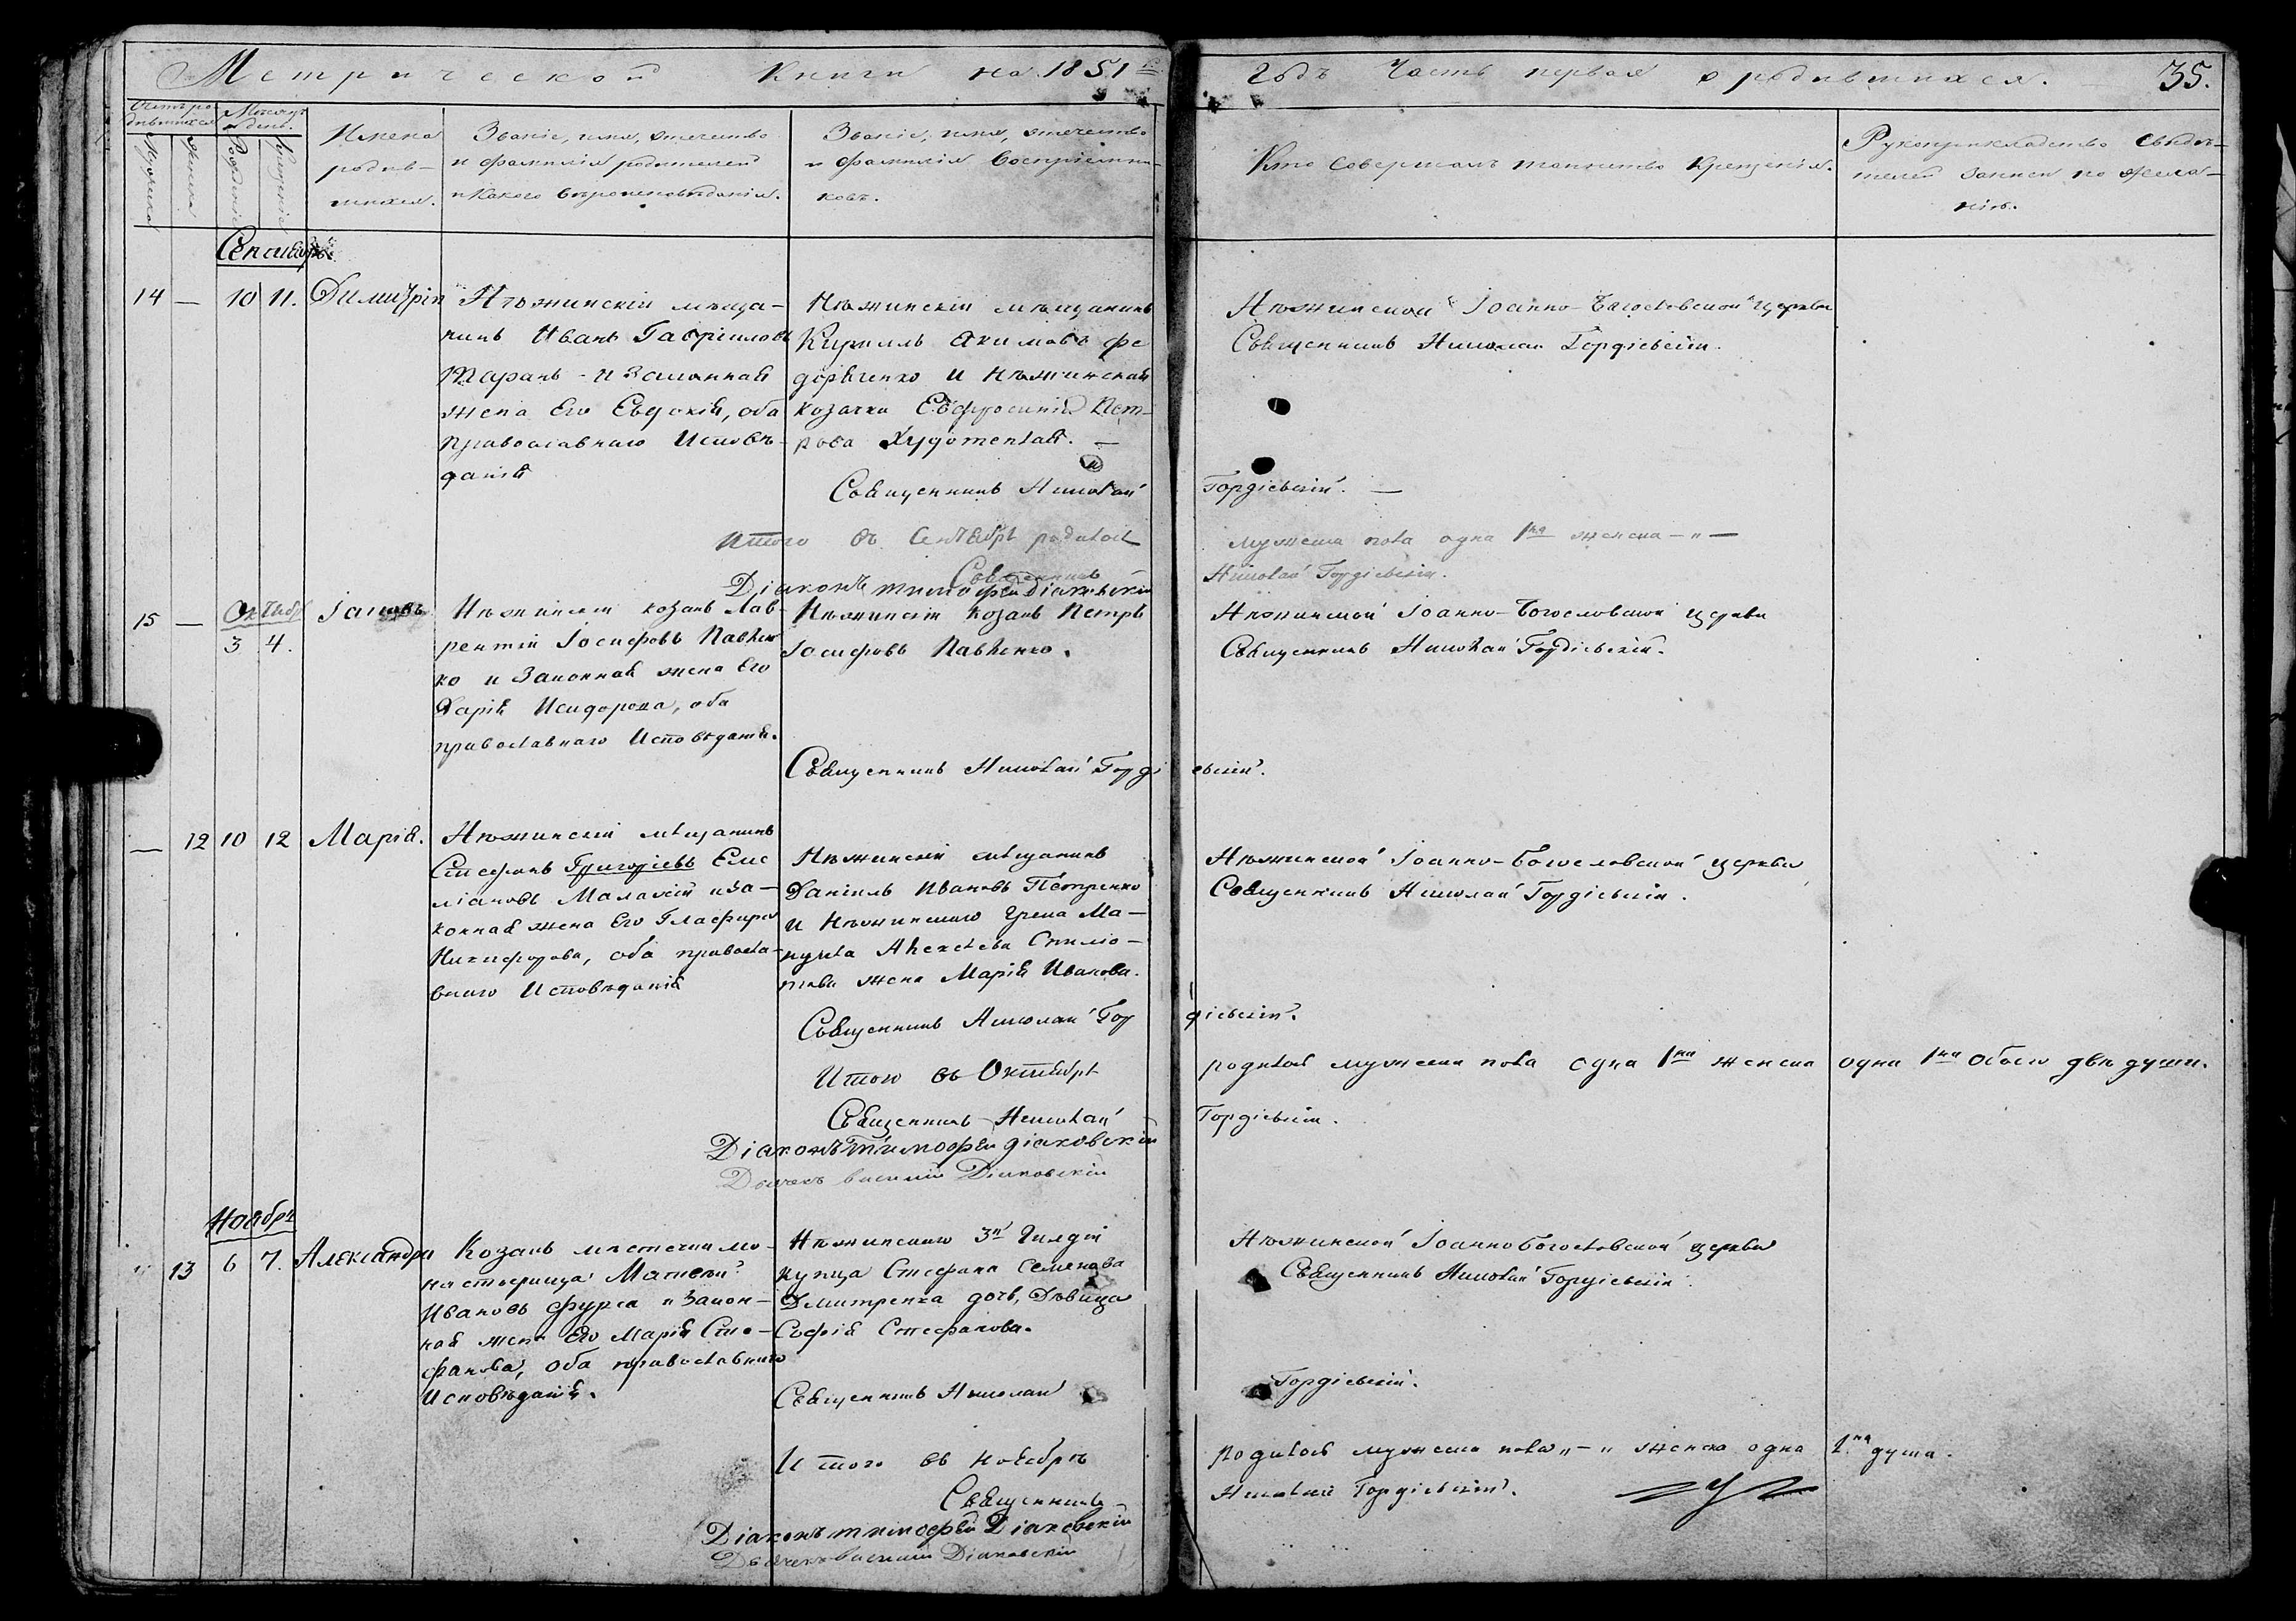 Метрической Книги на 1851й
Годъ Часть первая о родившихся. 35.
Счетъ ро-
дившихся
Мужеска
Женска
Месяцъ
и день.
Рожденіе
Крещеніе
Имена
родив-
шихся.
Званіе, имя, отечество
и фамилія родителей
и какого вѣроисповѣданія.
Званіе, имя, отечество
и фамилія воспріемни-
ковъ.
Кто совершалъ таинство крещенія.
Рукоприкладство свидѣ-
телей записи по жела-
нію.
Сентябрь.
14 — 10 11. Димитрій
Нѣжинскій мѣща-
нинъ Иванъ Гавриловъ
Таранъ и законная
жена Его Евдокія, оба
православнаго Исповѣ-
данія
Нѣжинскій мѣщанинъ
Кириллъ Акимовъ Фе
дорченко и Нѣжинская
козачка Евфросинія Пет-
рова
Священникъ Николай
Нѣжинской Іоанно-Богословской церкви
Священникъ Николай Гордіевскій.
Гордіевскій. —
Итого въ Сентябрѣ родилось
мужеска пола одна 1на женска — „ —
Священникъ
Николай Гордіевскій.
Діаконъ Тимофей Діаковскій
15 — Октябр
3 4.
Іаковъ
Нѣжинскій козакъ Лав-
рентій Іосифовъ Павлен
ко и Законная жена Его
Дарія Исидорова, оба
православнаго Исповѣданія.
Нѣжинскій Козакъ Петръ
Іосифовъ Павленко.
Священникъ Николай Горді
Нѣжинской Іоанно-Богословской церкви
Священникъ Николай Гордіевскій.
евскій.
— 12 10 12 Марія.
Нѣжинскій мѣщанинъ
Стефанъ Григоріевъ Еме
ліановъ Малахій и за-
конная жена Его Глафира
Никифорова, оба правосла-
внаго Исповѣданія
Нѣжинскій мѣщанинъ
Даніилъ Ивановъ Петренко
и Нѣжинскаго Грека Ма-
нуила Алексѣева
жена Марія Иванова.
Священникъ Николай Гор
Нѣжинской Іоанно-Богословской церкви
Священникъ Николай Гордіевскій.
діевскій.
Итого въ Октябрѣ
родилось мужеска пола одна 1на женска одна 1на обоего двѣ души.
Священникъ Николай
Гордіевскій.
Діаконъ Тимофей Діаковскій
Дьячекъ Василій Діаковскій
Ноябрь
13 6 7. Александра
Козакъ мѣстечка Мо-
настырища Матвей
Ивановъ Фурса и Закон-
ная жена Его Марія Сте-
фанова, оба православнаго
Исповѣданія.
Нѣжинскаго 3й Гилдіи
купца Стефана Семенова
Дмитренка дочь, Дѣвица
Софія Стефанова.
Священникъ Николай
Нѣжинской Іоанно Богословской церкви
Священникъ Николай Гордіевскій.
Гордіевскій.
Итого въ Ноябрѣ
родилось мужеска пола „ — „ женска одна 1на душа.
Священникъ
Николай Гордіевскій.
Діаконъ Тимофей Діаковскій
Дьячекъ Василій Діаковскій